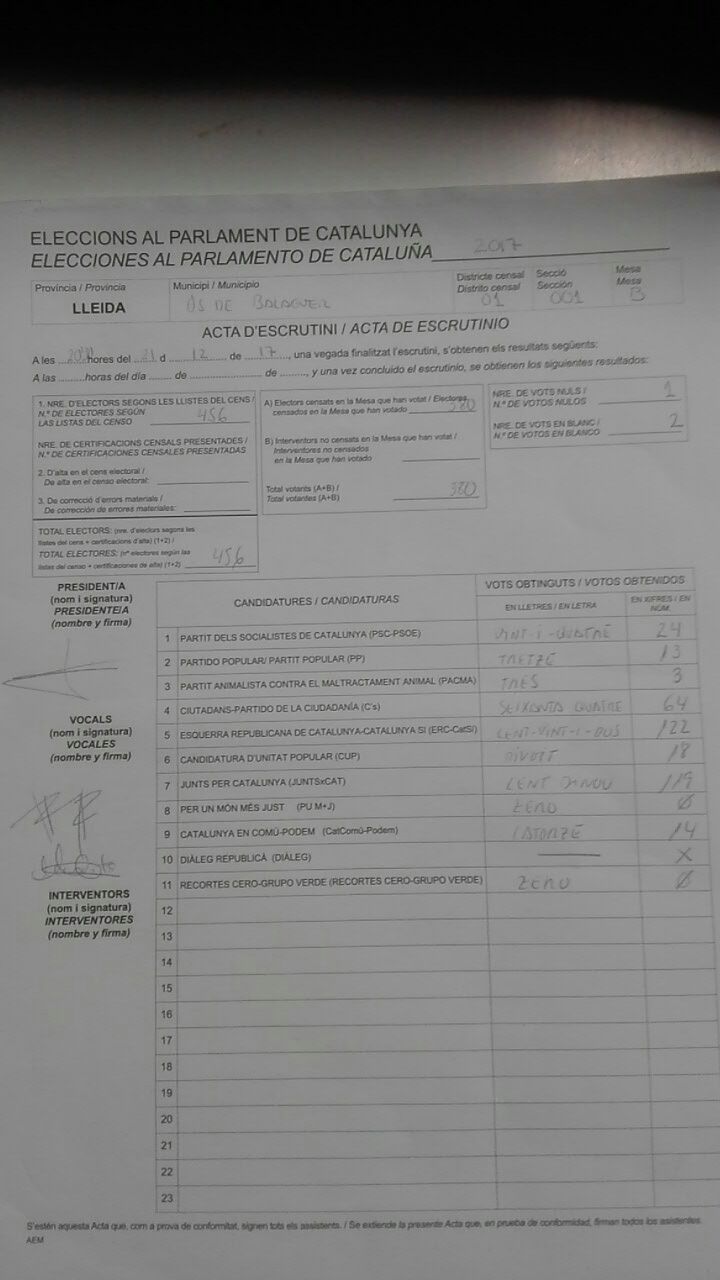 ELECCIONS AL PARLAMENT DE CATALUNYA
ELECCIONES AL PARLAMENTO DE CATALUÑA 2017
Província / Provincia
LLEIDA
Municipi / Municipio
OS DE BALAGUER
Districte censal
Distrito censal
01
Secció
Sección
001
Mesa
Mesa
B
ACTA D'ESCRUTINI / ACTA DE ESCRUTINIO
A les ..... hores del 21 d 12 de 17, una vegada finalitzat l'escrutini, s'obtenen els resultats següents:
A las ..... horas del día ..... de ..... de ....., y una vez concluido el escrutinio, se obtienen los siguientes resultados:
1. NRE. D'ELECTORS SEGONS LES LLISTES DEL CENS /
N.º DE ELECTORES SEGÚN
LAS LISTAS DEL CENSO 456
NRE. DE CERTIFICACIONS CENSALS PRESENTADES /
N.º DE CERTIFICACIONES CENSALES PRESENTADAS
2. D'alta en el cens electoral /
De alta en el censo electoral:
3. De correcció d'errors materials /
De corrección de errores materiales:
TOTAL ELECTORS: (nre. d'electors segons les
llistes del cens + certificacions d'alta) (1+2) /
TOTAL ELECTORES: (nº electores según las
listas del censo + certificaciones de alta) (1+2) 456
A) Electors censats en la Mesa que han votat / Electores
censados en la Mesa que han votado 380
B) Interventors no censats en la Mesa que han votat /
Interventores no censados
en la Mesa que han votado
Total votants (A+B) /
Total votantes (A+B) 380
NRE. DE VOTS NULS /
N.º DE VOTOS NULOS 1
NRE. DE VOTS EN BLANC /
N.º DE VOTOS EN BLANCO 2
PRESIDENT/A
(nom i signatura)
PRESIDENTE/A
(nombre y firma)
VOCALS
(nom i signatura)
VOCALES
(nombre y firma)
INTERVENTORS
(nom i signatura)
INTERVENTORES
(nombre y firma)
CANDIDATURES / CANDIDATURAS
VOTS OBTINGUTS / VOTOS OBTENIDOS
EN LLETRES / EN LETRA
EN XIFRES / EN NÚM.
1 PARTIT DELS SOCIALISTES DE CATALUNYA (PSC-PSOE) VINT-I-QUATRE 24
2 PARTIDO POPULAR/ PARTIT POPULAR (PP) TRETZE 13
3 PARTIT ANIMALISTA CONTRA EL MALTRACTAMENT ANIMAL (PACMA) TRES 3
4 CIUTADANS-PARTIDO DE LA CIUDADANÍA (C's) SEIXANTA QUATRE 64
5 ESQUERRA REPUBLICANA DE CATALUNYA-CATALUNYA SÍ (ERC-CatSí) CENT-VINT-I-DOS 122
6 CANDIDATURA D'UNITAT POPULAR (CUP) DIVUIT 18
7 JUNTS PER CATALUNYA (JUNTSxCAT) CENT DINOU 119
8 PER UN MÓN MÉS JUST (PU M+J) ZERO Ø
9 CATALUNYA EN COMÚ-PODEM (CatComú-Podem) CATORZE 14
10 DIÀLEG REPUBLICÀ (DIÀLEG) — X
11 RECORTES CERO-GRUPO VERDE (RECORTES CERO-GRUPO VERDE) ZERO Ø
12
13
14
15
16
17
18
19
20
21
22
23
S'estén aquesta Acta que, com a prova de conformitat, signen tots els assistents. / Se extiende la presente Acta que, en prueba de conformidad, firman todos los asistentes.
AEM